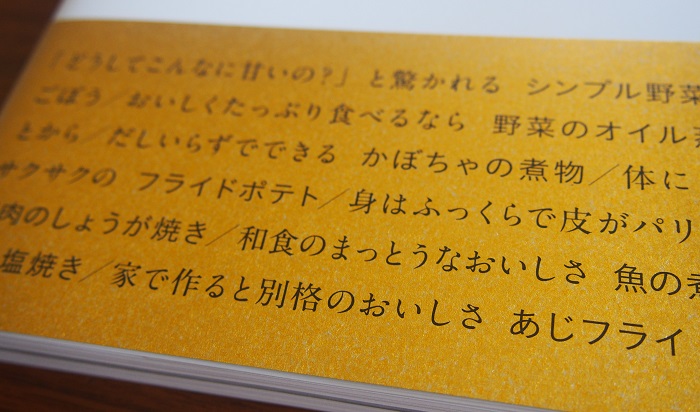 「どうしてこんなに甘いの?」と驚かれる シンプル野菜
ごぼう／おいしくたっぷり食べるなら 野菜のオイル
とから／だしいらずでできる かぼちゃの煮物／体に
サクサクの フライドポテト／身はふっくらで皮がパリ
肉のしょうが焼き／和食のまっとうなおいしさ 魚の煮
塩焼き／家で作ると別格のおいしさ あじフライ